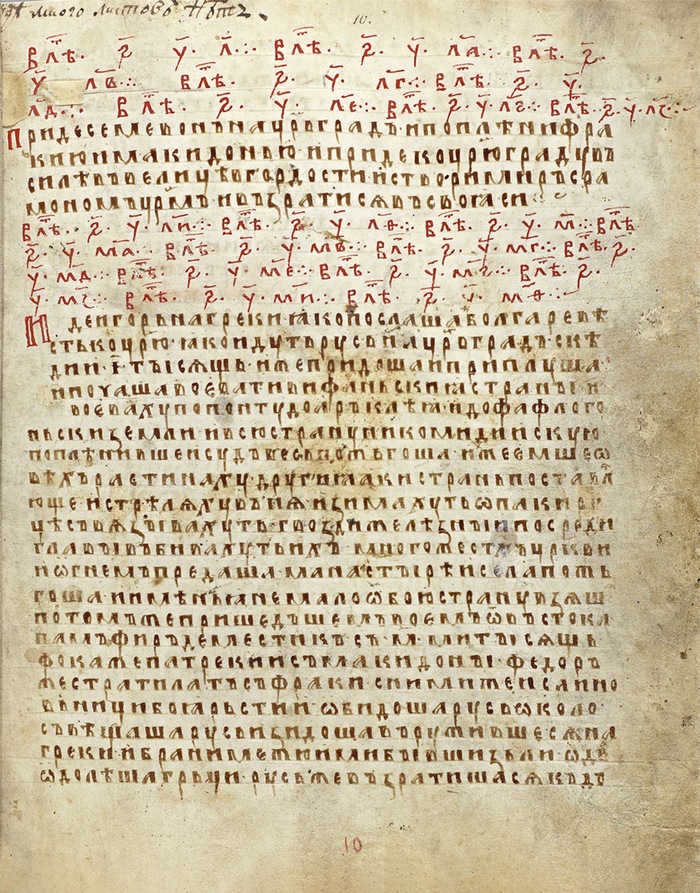 много листовъ нѣтъ
10.
В лѣⷮ · ҂ѕ҃ · у҃ · л҃ ⁘ В лѣⷮ · ҂ѕ҃ · у҃ · л҃а ⁘ В лѣⷮ · ҂ѕ҃ ·
у҃ · л҃в ⁘ В лѣⷮ · ҂ѕ҃ · у҃ · л҃г ⁘ В лѣⷮ · ҂ѕ҃ · у҃ ·
л҃д ⁘ В лѣⷮ · ҂ѕ҃ · у҃ · л҃е ⁘ В лѣⷮ · ҂ѕ҃ · у҃ · л҃ѕ ⁘ В лѣⷮ · ҂ѕ҃ · у҃ · л҃з ⁘
Приде семевонъ на цр҃ьградъ и поплѣни фра
кию и макидонью · и приде ко цр҃ю граду въ
силѣ въ велицѣ в гордости · и створи миръ с ра
мономъ цр҃мъ и възратисѧ въ своꙗ си ⁘
В лѣⷮ · ҂ѕ҃ · у҃ · л҃и ⁘ В лѣⷮ · ҂ѕ҃ · у҃ · л҃ѳ ⁘ В лѣⷮ · ҂ѕ҃ · у҃ · м҃ ⁘ В лѣⷮ
҂ѕ҃ · у҃ · м҃а ⁘ В лѣⷮ · ҂ѕ҃ · у҃ · м҃в ⁘ В лѣⷮ · ҂ѕ҃ · у҃ · м҃г ⁘ В лѣⷮ · ҂ѕ҃ ·
у҃ · м҃д ⁘ В лѣⷮ · ҂ѕ҃ · у҃ · м҃е ⁘ В лѣⷮ · ҂ѕ҃ · у҃ · м҃ѕ ⁘ В лѣⷮ · ҂ѕ҃ ·
у҃ · м҃з ⁘ В лѣⷮ · ҂ѕ҃ · у҃ · м҃и ⁘ В лѣⷮ · ҂ѕ҃ · у҃ · м҃ѳ ⁘
Иде игорь на греки · ꙗко послаша болгаре вѣ
сть ко цр҃ю · ꙗко идуть русь на цр҃ьградъ скѣ
дии · і҃ · тысѧщь · иже придоша и приплуша
и почаша воевати вифаньскиꙗ страны · и
воеваху по понту до аръклиꙗ и до фафлого
ньски земли · и всю страну никомидийскую
поплѣнивше и судъ весь пожьгоша · ихже емше ѡ
вѣхъ растинаху другиꙗ аки странь поставлѧ
юще и стрѣлѧху въ нѧ · изимахуть ѡпаки ру
цѣ съвѧзывахуть · гвозди желѣзныи посреди
главы въбивахуть имъ · много же ст҃хъ цр҃кви
и ѡгнемъ предаша · манастырѣ и села пожь
гоша · и имѣньꙗ не мало ѿ обою страну взѧш
потомъ же пришедъшемъ воемъ ѿ въстока
памъфиръ деместикъ съ · м҃ · ми тысѧщь
фока же патрекии съ макидоны · федоръ
же стратилатъ съ фраки · с ними же и санно
вници боꙗрьстии · ѡбидоша русь ѡколо
съвѣщаша русь изидоша въруживше сѧ на
греки · и брани межю ими бывши зьли ѡдва
ѡдолѣша грьци · русь же възратишасѧ къ др
10